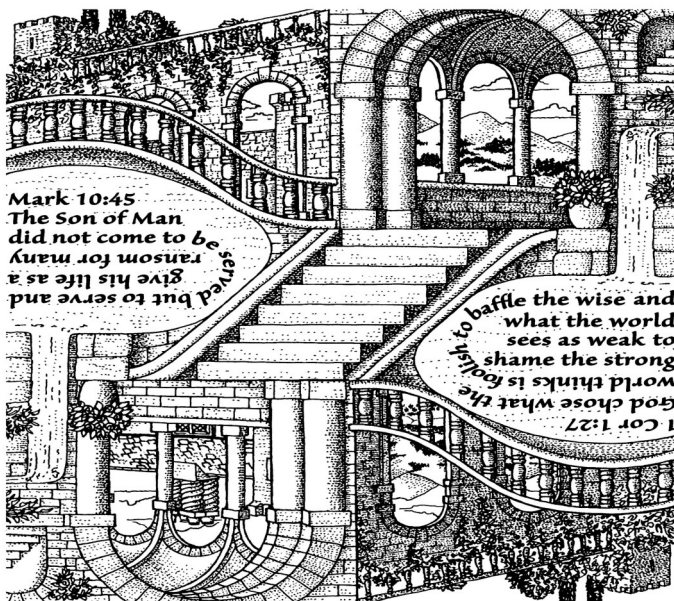 Mark 10:45
The Son of Man
did not come to be served but to serve and
give his life as a
ransom for many
1 Cor 1:27
God chose what the
world thinks is foolish to baffle the wise and
what the world
sees as weak to
shame the strong